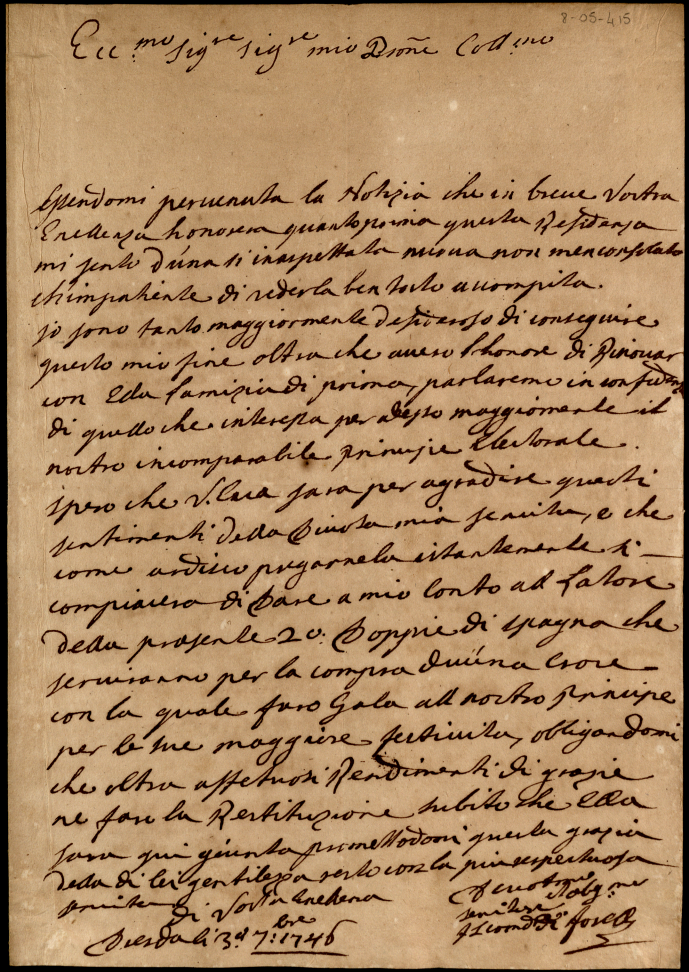 8-05-415
Ecc.mo Sig.re Sig.re mio Prone Coll.mo
Essendomi pervenuta la Notizia che in breve Vostra
Eccellenza honorera quanto prima questa Residenza
mi sento d'una si inaspettata nuova non men consolato
ch'impatiente di vederla ben tosto accompita.
jo sono tanto maggiormente desideroso di conseguire
questo mio fine oltra che avero l'honore di Rinovar
con Ella l'amizia di prima, parlaremo in confidenza
di quello che interessa per adesso maggiormente il
nostro incomparabile Principe Electorale.
spero che V. Ecca sara per agradire questi
sentimenti della Divota mia servitu, e che
come ardisco pregarnela istantemente si
compiacera di Dare a mio Conto all Latore
della presente 20: Doppie di spagna che
serviranno per la compra d'una Croce
con la quale faro Gala all nostro Principe
per le sue maggiore festivita, obligandomi
che oltra affetuosi Rendimenti di grazie
ne faro la Restituzione subito che Ella
sara qui giunta promettodomi questa grazia
della di lei gentilezza resto con la piu respectuosa
servitu
di Vostra Eccellenza
Devotmo Oblgmo
servitore
Dresda li 3d 7:bre 1746